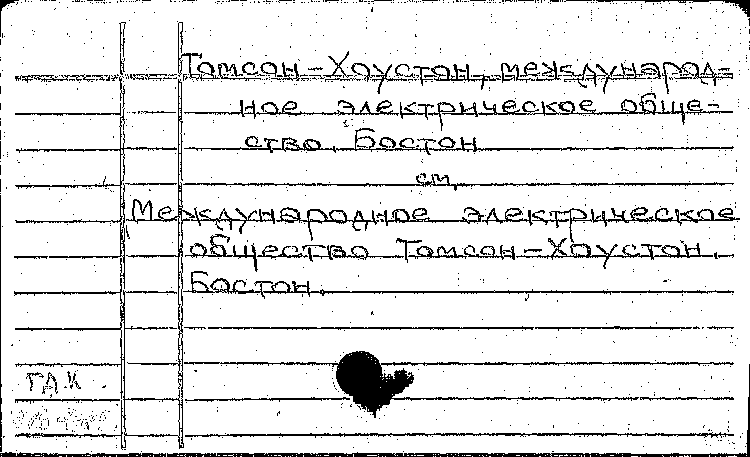 Томсон-Хоустон, международ-
ное электрическое обще-
ство, Бостон
см.
Международное электрическое
общество Томсон-Хоустон,
Бостон.
ГАК.